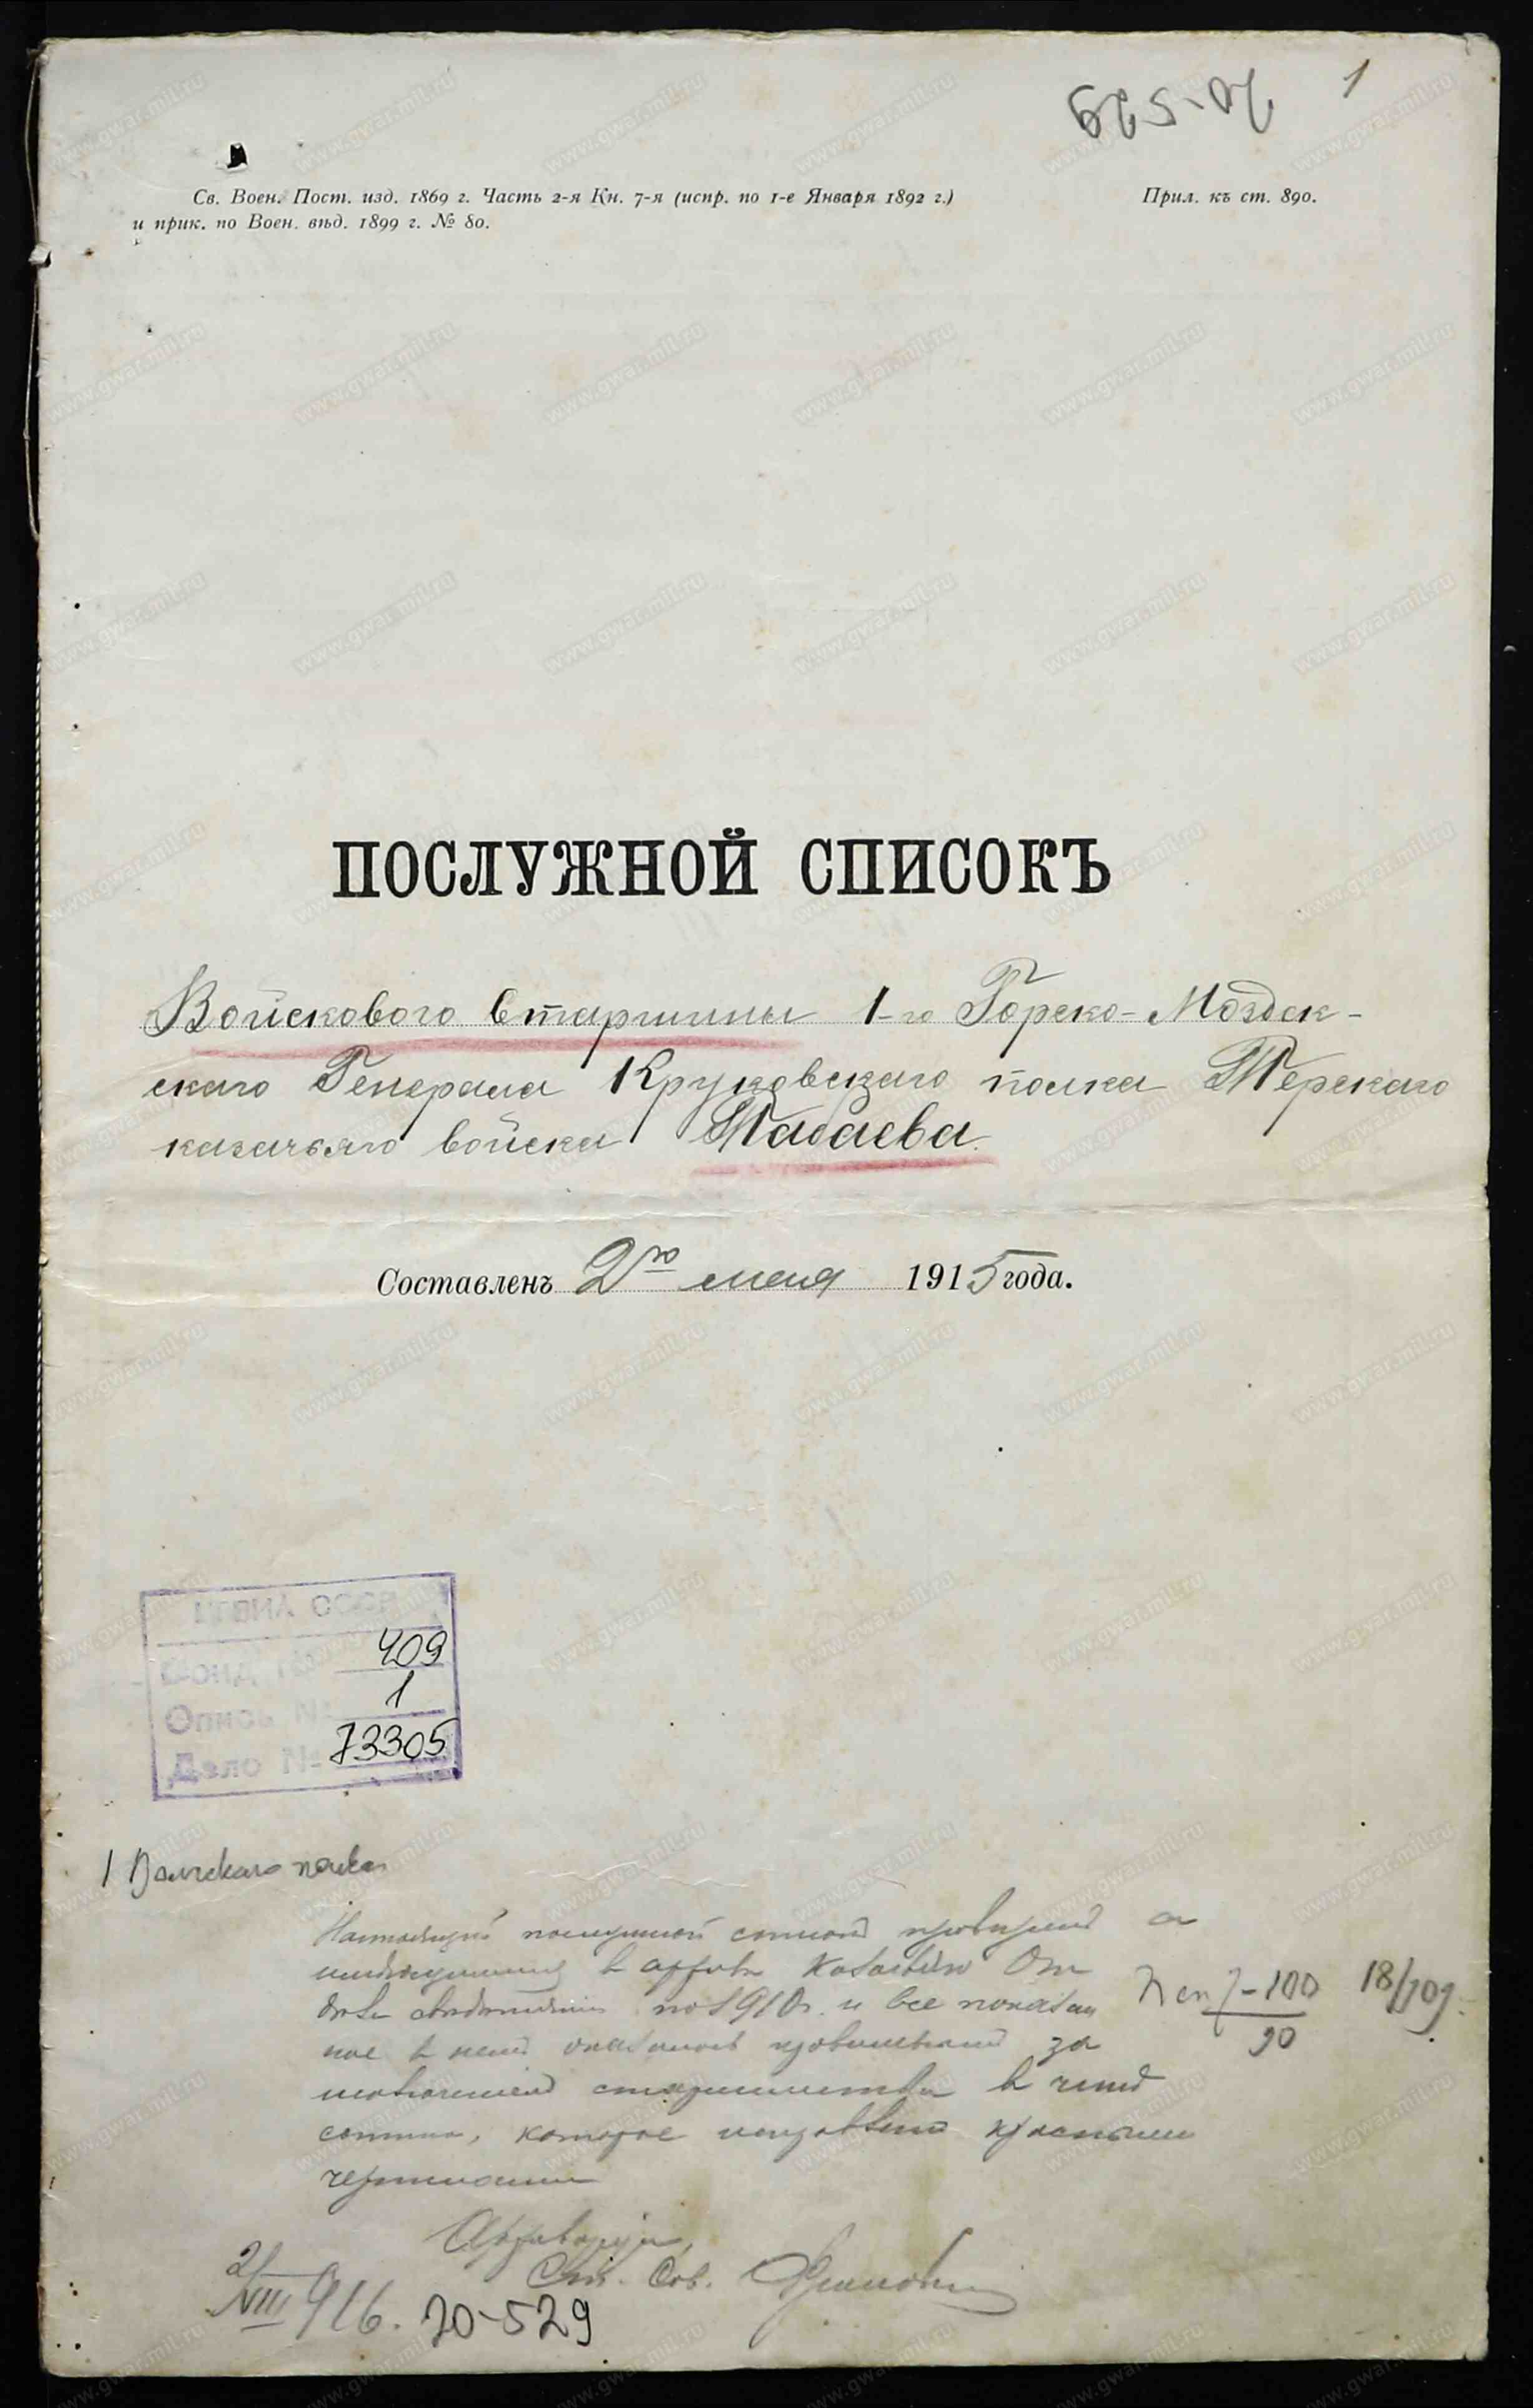 1
70-529
Св. Воен. Пост. изд. 1869 г. Часть 2-я Кн. 7-я (испр. по 1-е Января 1892 г.)
и прик. по Воен. вѣд. 1899 г. № 80.
Прил. къ ст. 890.
ПОСЛУЖНОЙ СПИСОКЪ
Войскового Старшины 1-го Горско-Моздок-
скаго Генерала Круковскаго полка Терскаго
казачьяго войска Табаева.
Составленъ 2го мая 1915 года.
ЦГВИА СССР
Фонд № 409
Опись № 1
Дело № 73305
1 Волгскаго полка
Настоящий послужной список проверен
в архиве
по 1910г. и все показан
ное в нем оказалось правильным за
старшинства в чине
сотника, которое исправлено красными
чернилами
100
90
18/109.
Архиварус,
Ст. Сов.
2/VIII 916. 70-529